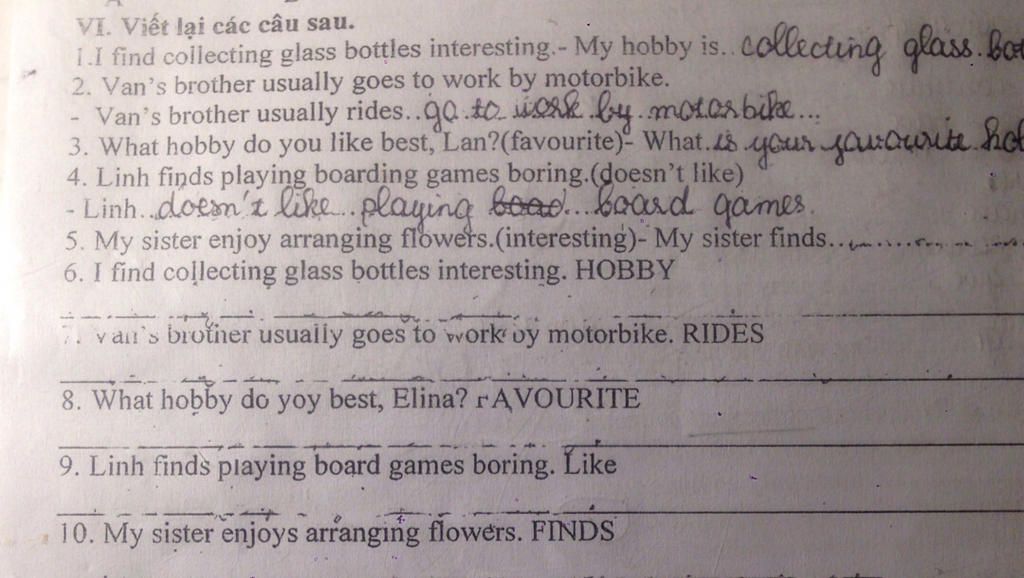 VI. Viết lại các câu sau.
1.I find collecting glass bottles interesting.- My hobby is..collecting glass.
2. Van's brother usually goes to work by motorbike.
- Van's brother usually rides..go to work by motorbike...
3. What hobby do you like best, Lan?(favourite)- What.is your favourite
4. Linh finds playing boarding games boring.(doesn't like)
- Linh..doesn't like..playing ...board games.
5. My sister enjoy arranging flowers.(interesting)- My sister finds.....
6. I find collecting glass bottles interesting. HOBBY
7. Van's brother usually goes to work by motorbike. RIDES
8. What hobby do yoy best, Elina? FAVOURITE
9. Linh finds playing board games boring. Like
10. My sister enjoys arranging flowers. FINDS